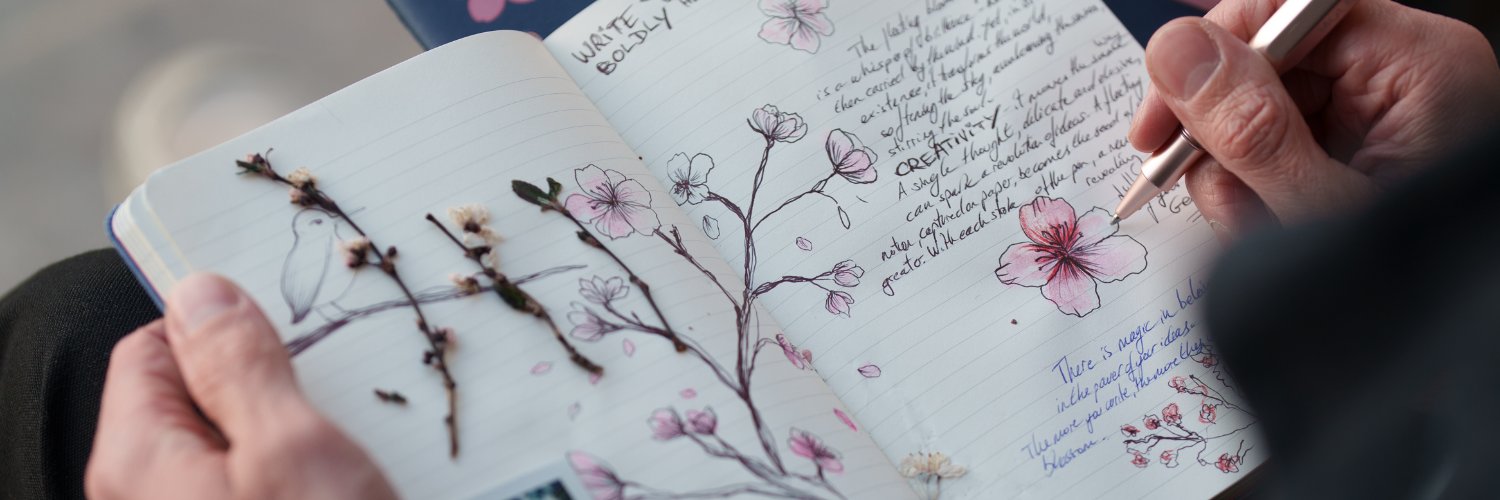 WRITE
BOLDLY
The fleeting bloom
is a whisper of brilliance
then carried by the wind. Yet, in its
existence, it transforms the world,
softening the sky, awakening the
stirring the soul.
CREATIVITY, it moves the same way
A single thought, delicate and elusive,
can spark a revolution of ideas. A fleeting
notion, captured on paper, becomes the seed of
greater. With each stroke of the pen, a new
revealing
There is magic in
in the power of your ideas.
The more you write, the more they
blossom...